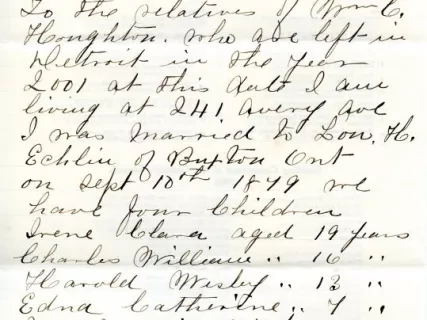 To the relatives of Wm C.
Houghton. who are left in
Detroit in the year
2001 at this date I am
living at 241 Avery Ave
I was married to Lon. H.
Echlin of Buxton Ont
on Sept 10th 1879 we
have four Children
Irene Clara aged 19 years
Charles William " 16 "
Harold Wesley " 13 "
Edna Catherine " 7 "